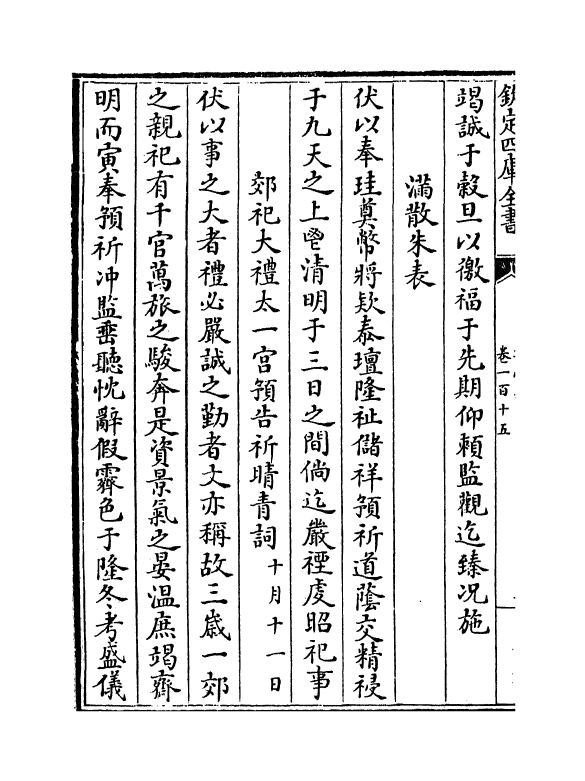 欽定四庫全書
卷一百十五
竭誠于穀旦以徼福于先期仰頼監觀迄臻况施
滿散朱表
伏以奉珪奠幣將欵泰壇隆祉儲祥預祈道蔭交精祲
于九天之上鬯清明于三日之間倘迄嚴禋䖍昭祀事
郊祀大禮太一宫預告祈晴青詞十月十一日
伏以事之大者禮必嚴誠之勤者文亦稱故三嵗一郊
之親祀有千官萬旅之駿奔是資景氣之晏温庶竭齋
明而寅奉預祈冲監垂聽忱辭假霽色于隆冬考盛儀